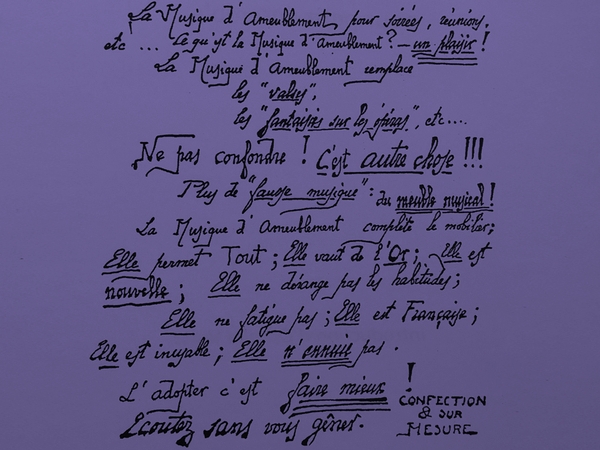 La Musique d'Ameublement pour soirées, réunions,
etc ... Ce qu'est la Musique d'Ameublement? — un plaisir!
La Musique d'Ameublement remplace
les "valses",
les "fantaisies sur les opéras", etc....
Ne pas confondre ! C'est autre chose !!!
Plus de "fausse musique": du meuble musical!
La Musique d'Ameublement complète le mobilier;
Elle permet Tout; Elle vaut de l'Or; Elle est
nouvelle; Elle ne dérange pas les habitudes;
Elle ne fatigue pas; Elle est Française;
Elle est inusable; Elle n'ennuie pas.
L'adopter c'est faire mieux !
Ecoutez sans vous gêner.
CONFECTION
& SUR
MESURE